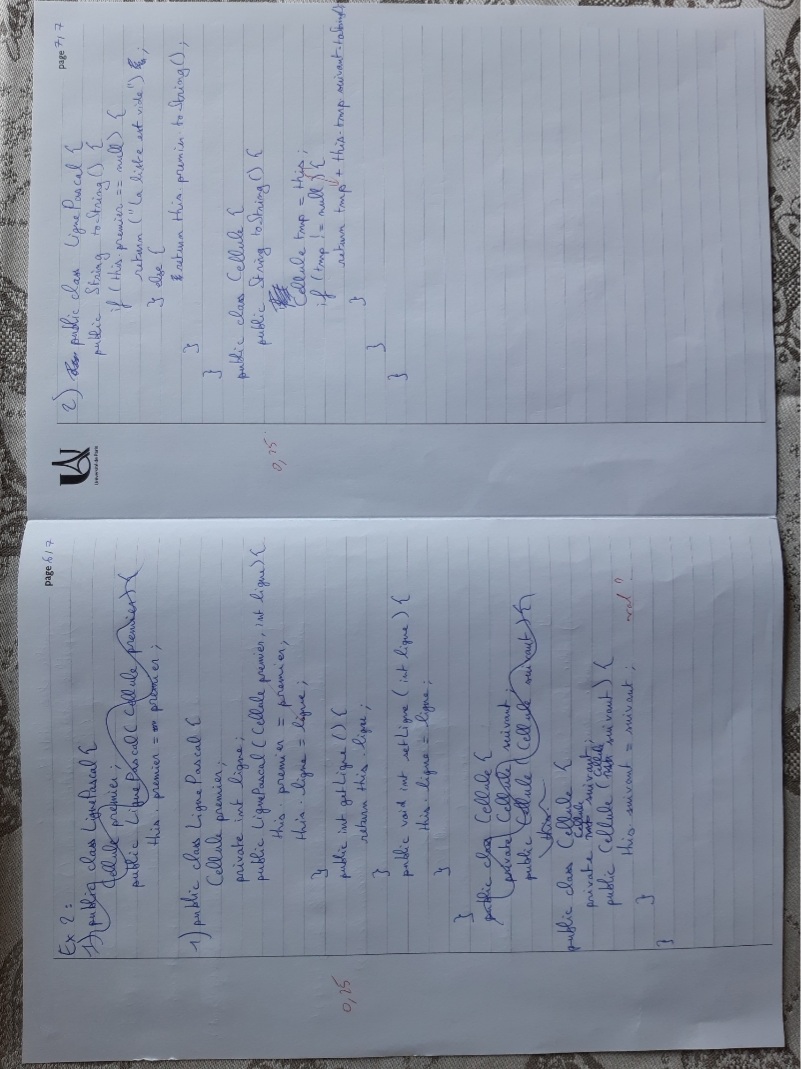 page 6/7
Ex 2 :
1) public class LignePascal {
Cellule premier ;
public LignePascal ( Cellule premier ) {
this . premier = premier ;
1) public class LignePascal {
Cellule premier ;
private int ligne ;
public LignePascal ( Cellule premier , int ligne ) {
this . premier = premier ;
this . ligne = ligne ;
}
public int getLigne () {
return this . ligne ;
}
public void int setLigne ( int ligne ) {
this . ligne = ligne ;
}
}
public class Cellule {
private Cellule suivant ;
public Cellule ( Cellule suivant ) {
public class Cellule {
private Cellule suivant ;
public Cellule ( Cellule suivant ) {
this . suivant = suivant ;
}
}
0,25
page 7/7
Université de Paris
2) public class LignePascal {
public String toString () {
if ( this . premier == null ) {
return ( "La liste est vide" ) ;
} else {
return this . premier . toString () ;
}
}
public class Cellule {
public String toString () {
Cellule tmp = this ;
if ( tmp != null ) {
return tmp + this . tmp . suivant .
}
}
}
0,25